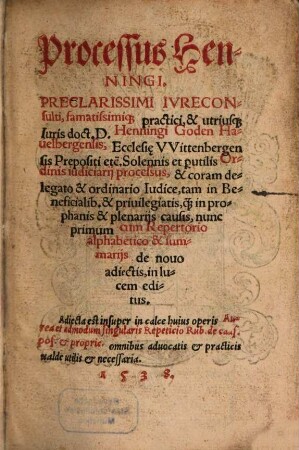 Processus Hen-
NINGI,
PRECLARISSIMI IVRECON-
sulti, famatissimiq; practici, & utriusq;
Iuris doct. D. Henningi Goden Ha
uelbergensis, Ecclesię VVittenbergen
sis Prepositi etc̄. Solennis et putilis Or
dinis iudiciarij processus, & coram de
legato & ordinario Iudice, tam in Be
neficialib, & priuilegiatis, q̃ in pro-
phanis & plenarijs causis, nunc
primum cum Repertorio
alphabetico & sum
marijs de nouo
adiectis, in lu
cem edi-
tus.
Adiecta est insuper in calce huius operis Au
rea et admodum singularis Repeticio Rub. de cau.
pos. & proprie. omnibus aduocatis & practicis
ualde utilis & necessaria.
1538.